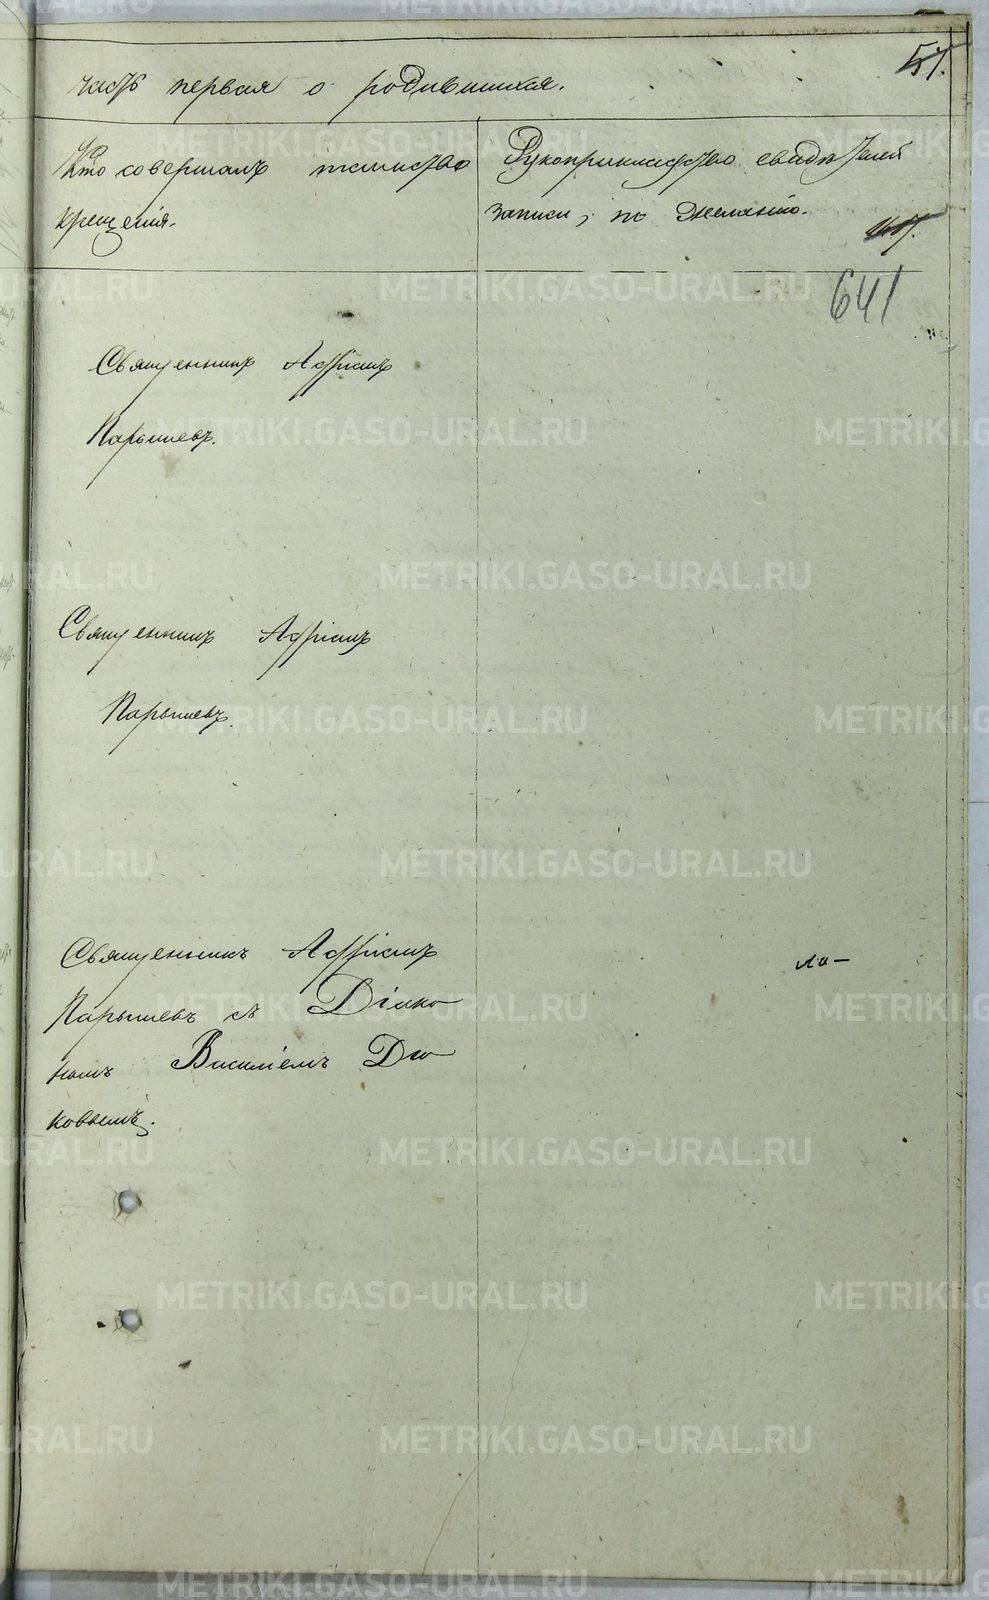 57.
часть первая о родившихся.
Кто совершалъ таинство
крещенія.
Рукоприкладство свидѣтелей
записи, по желанію.
641
Священникъ
Парышевъ.
Священникъ
Парышевъ.
Священникъ
Парышевъ съ Діако
номъ Василіемъ Дю
ковымъ.
METRIKI.GASO-URAL.RU